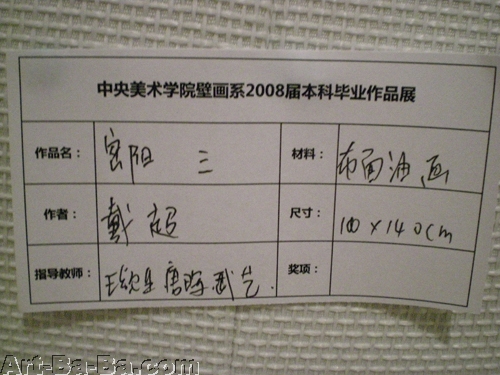 中央美术学院壁画系2008届本科毕业作品展
作品名： 密阳 三 材料： 布面油画
作者： 戴超 尺寸： 100×140cm
指导教师： 唐晖 武艺. 奖项：
Art-Ba-Ba.com